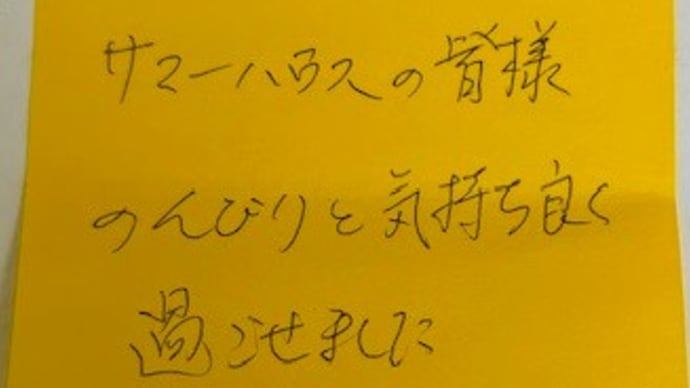 サマーハウスの皆様
のんびりと気持ち良く
過ごせました